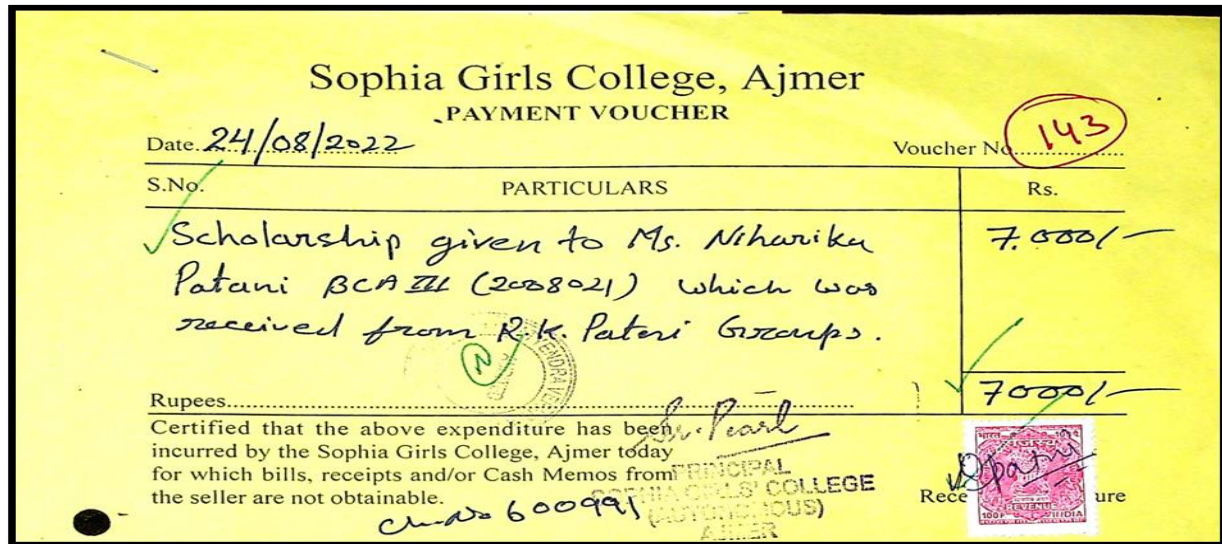 Sophia Girls College, Ajmer
PAYMENT VOUCHER
Date. 24/08/2022
Voucher No. 143
S.No. PARTICULARS Rs.
Scholarship given to Ms. Niharika 7.000/-
Patani BCA III (2008021) which was
received from R.K. Patni Groups.
Rupees.......... 7000/-
Certified that the above expenditure has been
incurred by the Sophia Girls College, Ajmer today
for which bills, receipts and/or Cash Memos from
the seller are not obtainable.
Sr. Pearl
PRINCIPAL
SOPHIA GIRLS' COLLEGE
(AUTONOMOUS)
AJMER
Ch. No 600991
Rece ure
REVENUE
INDIA